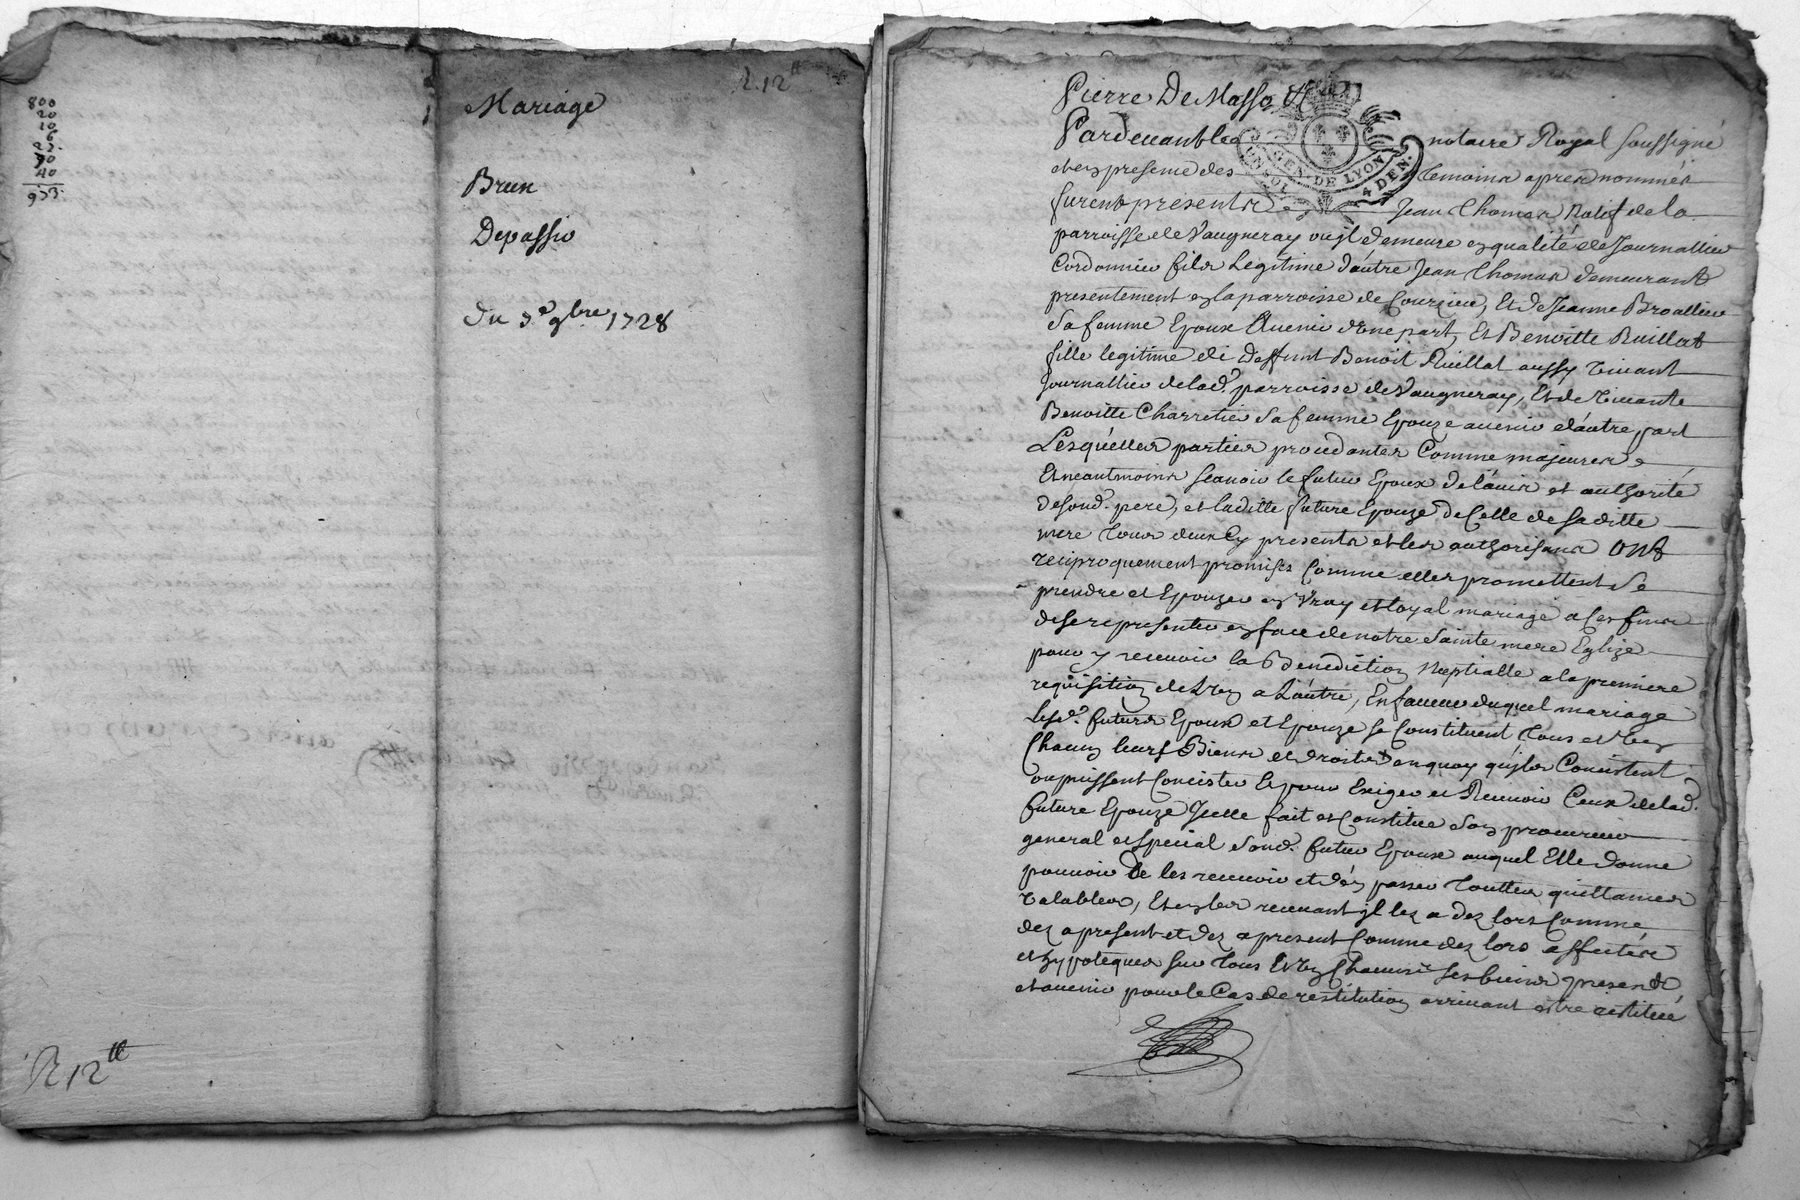 800
20
10
6
25
933
R. 12 tt
Mariage
Brun
Depassio
Du 3e 9bre 1728
R 12 tt
Pierre De Masso &
Pardevant le notaire Royal soussigné
GEN. DE LYON
UN SOL 4 DEN.
et en presence des temoins apres nommés
furent presents Jean Thomas natif de la
parroisse de Vaugneray ou jl demeure en qualité de Journallier
Cordonnier fils Legitime d'autre Jean Thomas demeurant
presentement en la parroisse de Courzieu, Et de Jeanne Broallier
sa femme Epoux Avenir d'une part, Et Benoitte Ruillat
fille legitime de deffunt Benoit Ruillat aussy vivant
Journallier de lad. parroisse de Vaugneray, Et de vivante
Benoitte Charretier sa femme Epouze avenir d'autre part
Lesquelles parties procedantes Comme majeures
Et neantmoins scavoir le futur Epoux de l'avis et authorité
de sond. pere, et laditte future Epouze de Celle de saditte
mere tous deux Cy presents et les authorisans ont
reciproquement promises Comme elles promettent se
prendre et Epouzer en Vray et loyal mariage a ces fins
de se representer en face de notre sainte mere Eglize
pour y recevoir la Benediction Nuptialle a la premiere
requisition de L'un a L'autre, En faveur duquel mariage
lesd. futurs Epoux et Epouze se Constituent tous et un
Chacun leurs Biens et droits en quoy qu'jls Concistent
ou puissent Concister Et pour Exiger et Recevoir Ceux de lad.
future Epouze Jcelle fait et Constitue son procureur
general et special sond. futur Epoux auquel Elle donne
pouvoir de les recevoir et d'en passer touttes quittances
valables, Et en les recevant jl les a dez lors Comme
dez a present et dez a present Comme dez lors affectés
et hypotequés sur tous Et un Chacuns ses biens presents
et avenir pour le Cas de restitution arrivant estre restitué